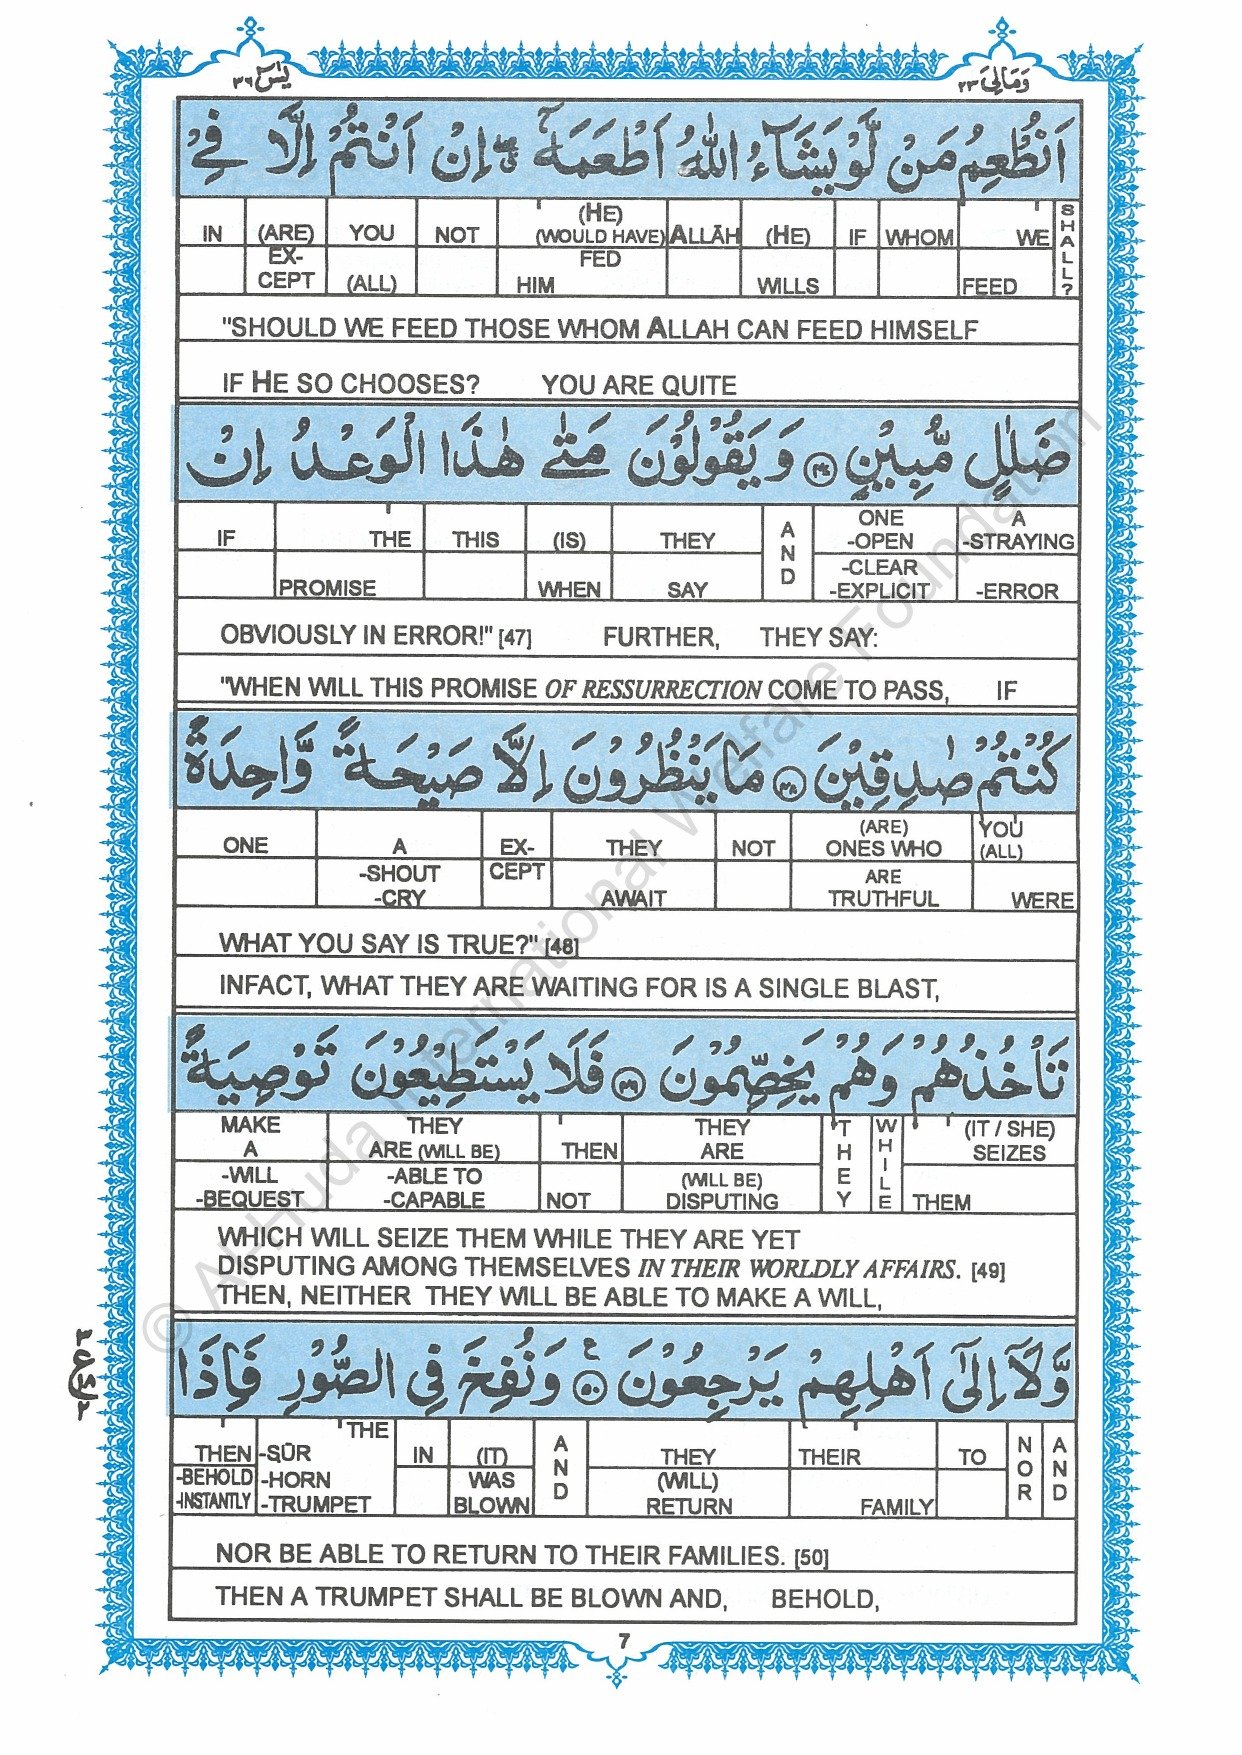 يٰسٓ ٣٦
وَمَالِيَ ٢٣
اَنُطْعِمُ مَنْ لَّوْ يَشَآءُ اللّٰهُ اَطْعَمَهٗٓ ۖ اِنْ اَنْتُمْ اِلَّا فِيْ
IN (ARE) YOU NOT (HE) (WOULD HAVE) ALLĀH (HE) IF WHOM WE SHALL?
EX-CEPT (ALL) FED HIM WILLS FEED
"SHOULD WE FEED THOSE WHOM ALLAH CAN FEED HIMSELF
IF HE SO CHOOSES? YOU ARE QUITE
ضَلٰلٍ مُّبِيْنٍ ٤٧ وَيَقُوْلُوْنَ مَتٰى هٰذَا الْوَعْدُ اِنْ
IF THE THIS (IS) THEY AND ONE -OPEN A -STRAYING
PROMISE WHEN SAY -CLEAR -EXPLICIT -ERROR
OBVIOUSLY IN ERROR!" [47] FURTHER, THEY SAY:
"WHEN WILL THIS PROMISE OF RESSURRECTION COME TO PASS, IF
كُنْتُمْ صٰدِقِيْنَ ٤٨ مَا يَنْظُرُوْنَ اِلَّا صَيْحَةً وَّاحِدَةً
ONE A EX- THEY NOT (ARE) ONES WHO YOU (ALL)
-SHOUT -CRY CEPT AWAIT ARE TRUTHFUL WERE
WHAT YOU SAY IS TRUE?" [48]
INFACT, WHAT THEY ARE WAITING FOR IS A SINGLE BLAST,
تَاْخُذُهُمْ وَهُمْ يَخِصِّمُوْنَ ٤٩ فَلَا يَسْتَطِيْعُوْنَ تَوْصِيَةً
MAKE A THEY ARE (WILL BE) THEN THEY ARE THEY WHILE (IT / SHE) SEIZES
-WILL -BEQUEST -ABLE TO -CAPABLE NOT (WILL BE) DISPUTING THEM
WHICH WILL SEIZE THEM WHILE THEY ARE YET
DISPUTING AMONG THEMSELVES IN THEIR WORLDLY AFFAIRS. [49]
THEN, NEITHER THEY WILL BE ABLE TO MAKE A WILL,
وَّلَآ اِلٰٓى اَهْلِهِمْ يَرْجِعُوْنَ ٥٠ ع وَنُفِخَ فِي الصُّوْرِ فَاِذَا
THEN THE -SŪR IN (IT) AND THEY THEIR TO NOR AND
-BEHOLD -INSTANTLY -HORN -TRUMPET WAS BLOWN (WILL) RETURN FAMILY
NOR BE ABLE TO RETURN TO THEIR FAMILIES. [50]
THEN A TRUMPET SHALL BE BLOWN AND, BEHOLD,
7
© Al-Huda International Welfare Foundation